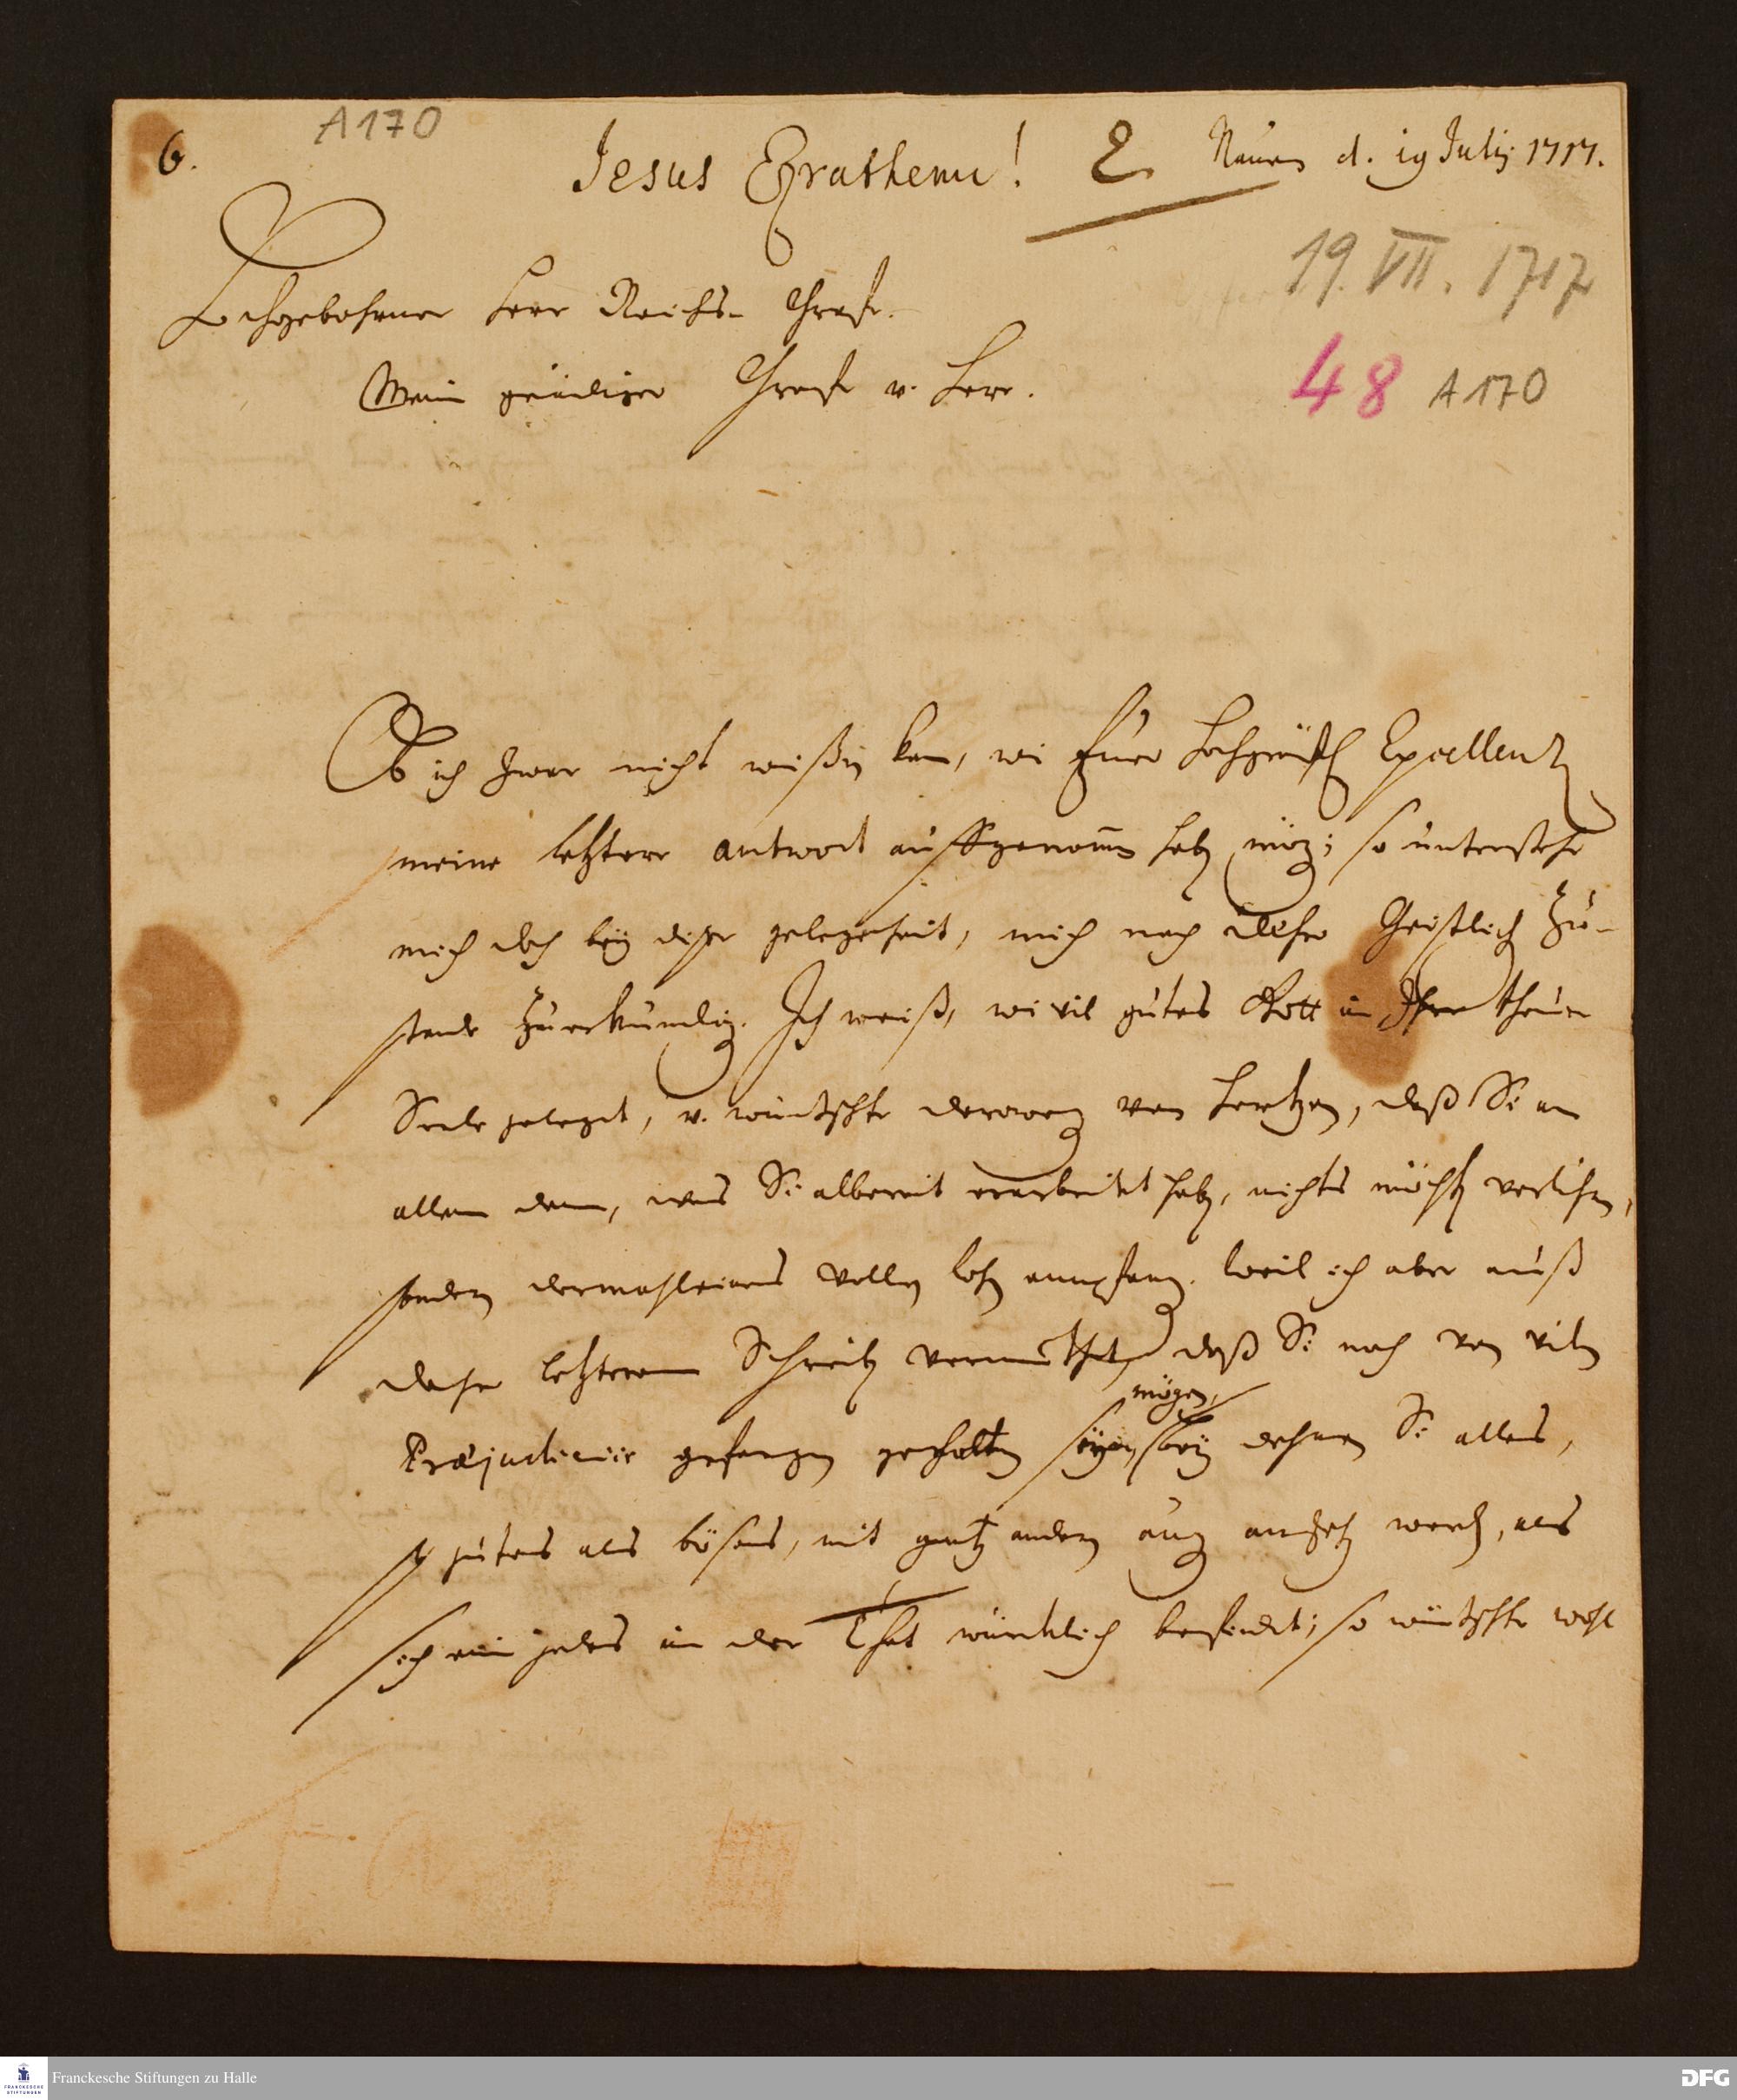 A170
6.
Jesus Epratkenu! 2 Nauen d. 19 Julij 1717.
19. VII. 1717
Hochgebohrner Herr Reichs-Graff.
48 A170
Mein gnädiger Graff u. Herr.
Ob ich zwar nicht wißen kan, wi Eure Hochgräfl Excellentz
meine letztere antwort auffgenomm haben mögen; so unterstehe
mich doch bey diser gelegenheit, mich nach Geistlich Zu-
stande zuerkundigen. Ich weiß, wi vil gutes Gott in Ihre theure
Seele geleget, u. wüntschte derowegen von Hertzen, daß Si an
allem dem, was Si albereit erarbeitet haben, nichts möchten verlihren,
sondern dermahleinens vollen lohn empfang. Weil ich aber auß
dero letzterem Schreiben vermuthet, daß Si noch von vilen
mögen,
Præjudiciis gefangen gehalten bey denen Si alles,
so gutes als böses, mit gantz andern augen ansehen werden, als
sich ein jedes in der That würcklich befindet; so wüntschte wohl
Franckesche Stiftungen zu Halle
DFG